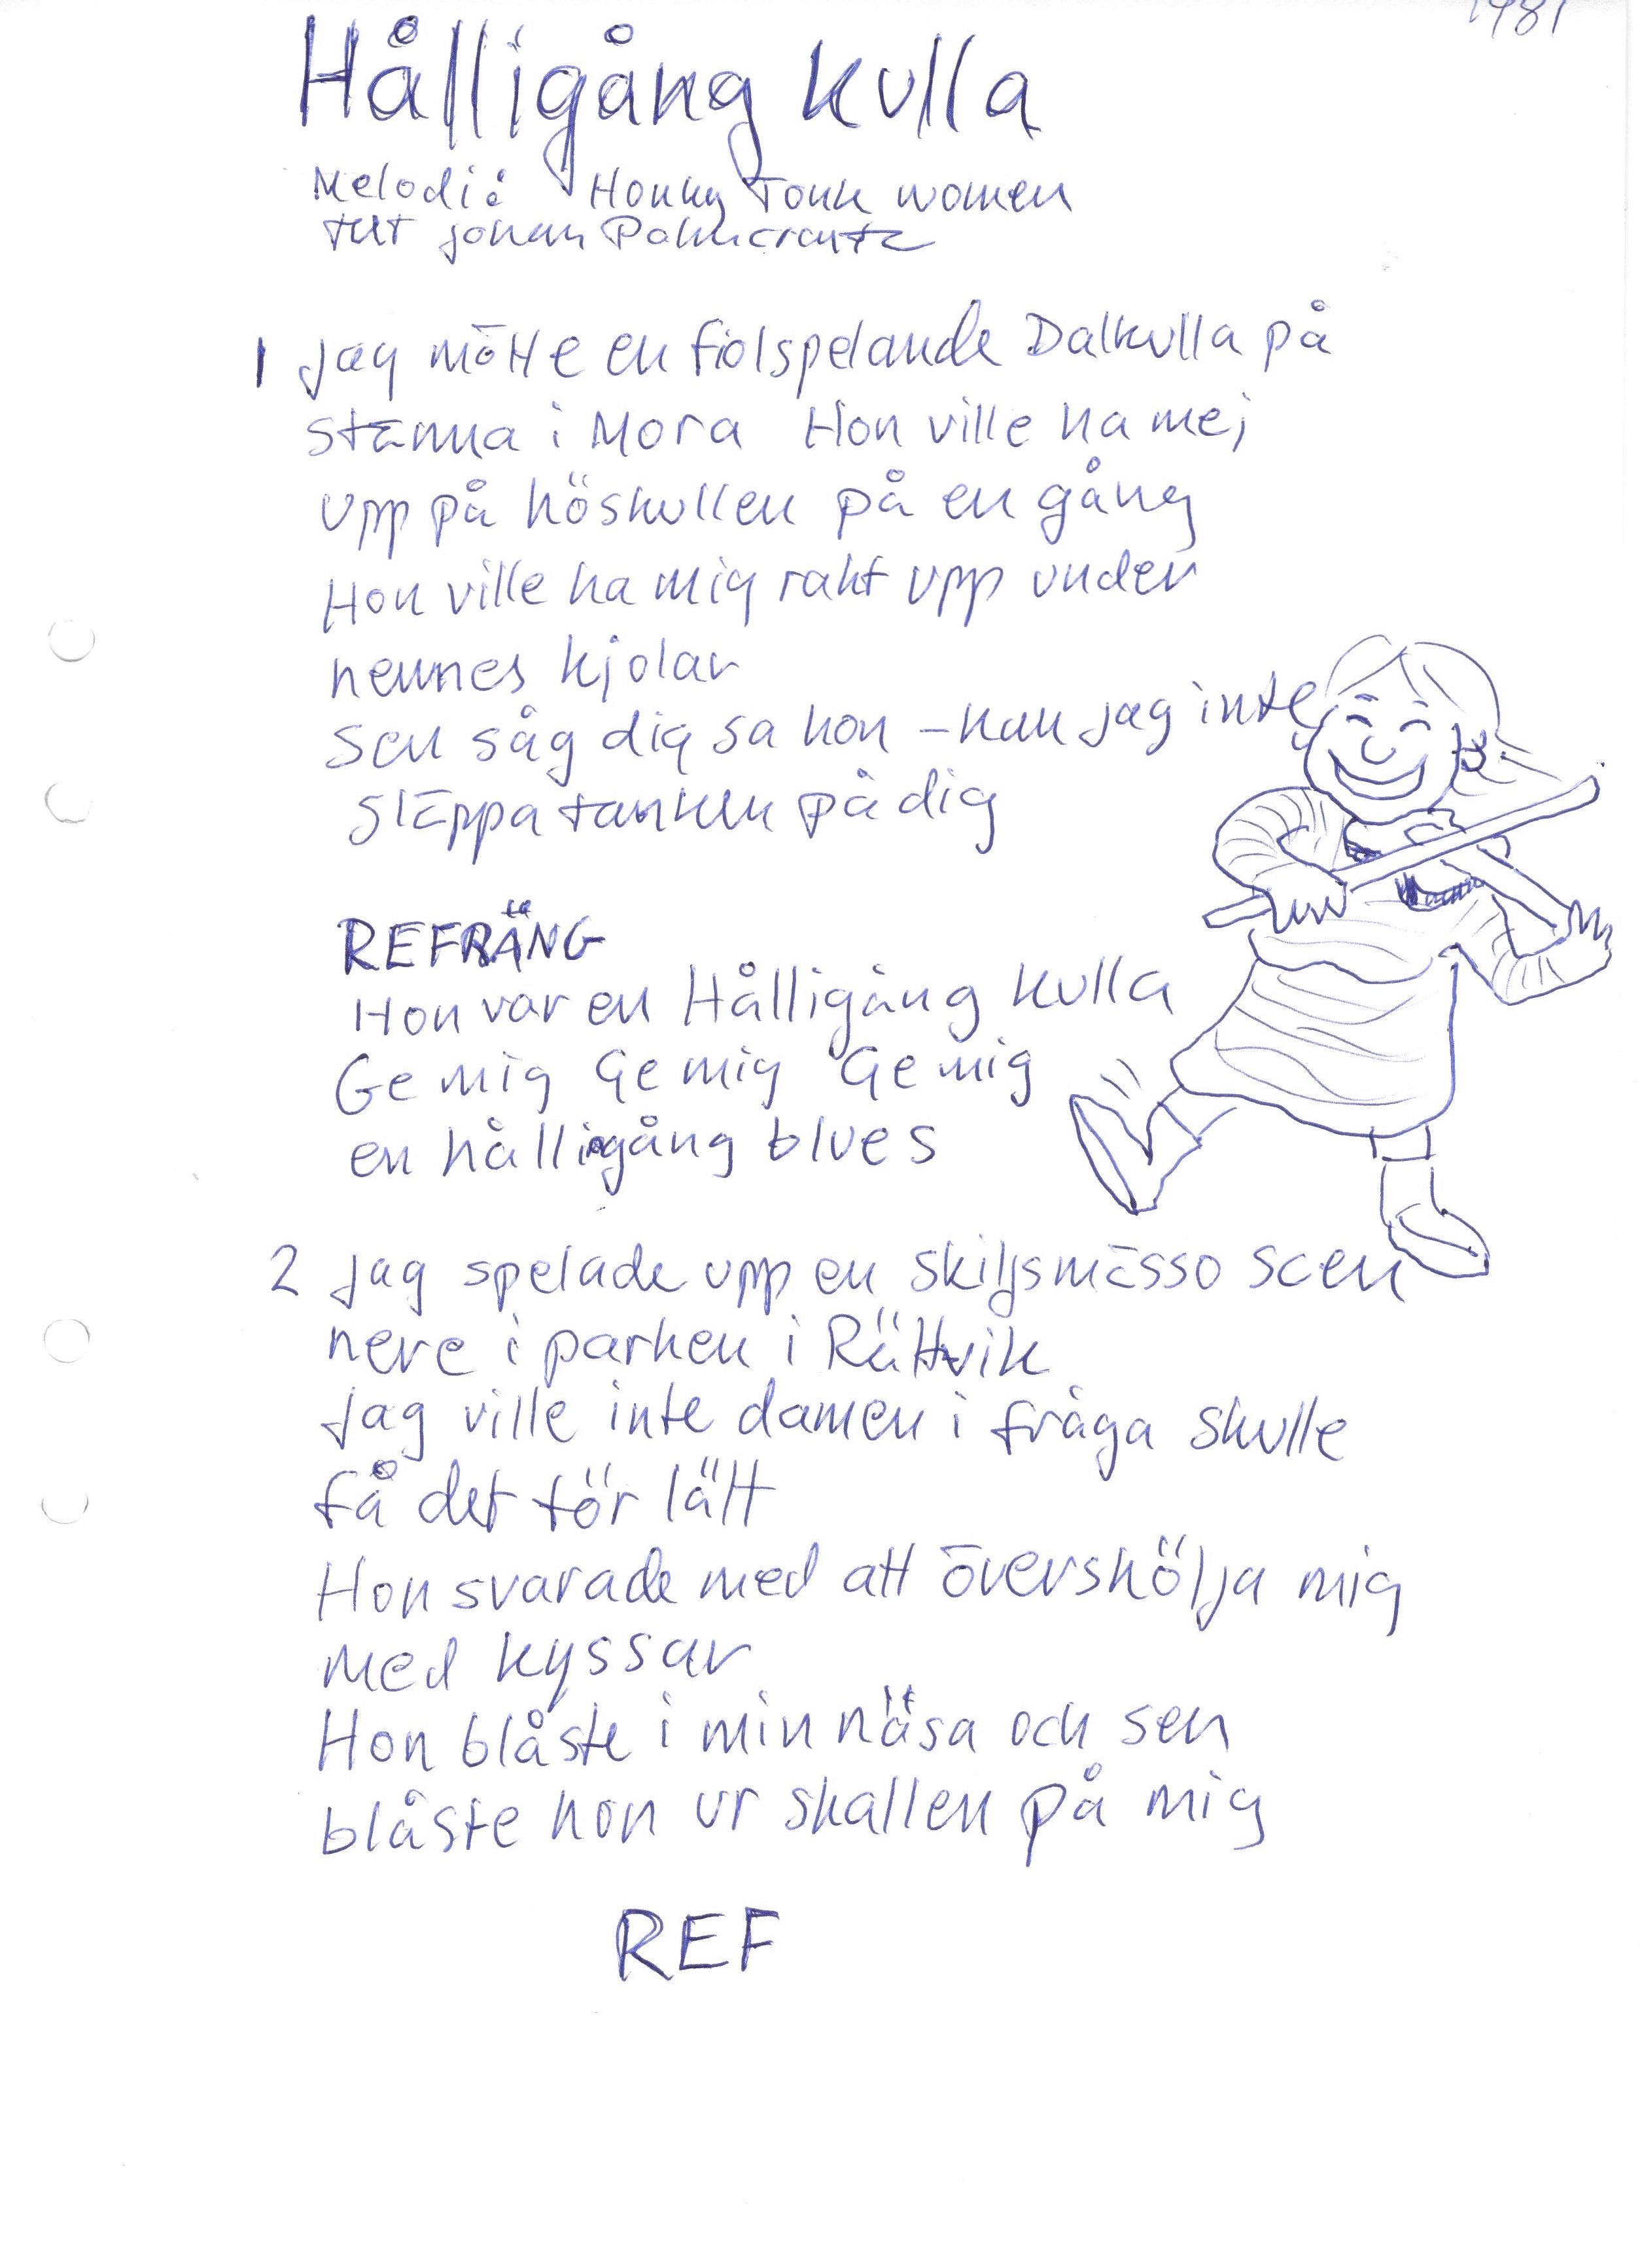 1981
Hålligång kulla
Melodi: Honky Tonk women
text Johan Palmcrantz
1 Jag mötte en fiolspelande Dalkulla på
stämma i Mora Hon ville ha mej
upp på höskullen på en gång
Hon ville ha mig rakt upp under
hennes kjolar
Sen såg dig sa hon – kan jag inte
släppa tanken på dig
REFRÄNG
Hon var en Hålligång kulla
Ge mig Ge mig Ge mig
en hålligång blues
2 Jag spelade upp en skiljsmässo scen
nere i parken i Rättvik
Jag ville inte damen i fråga skulle
få det för lätt
Hon svarade med att överskölja mig
med kyssar
Hon blåste i min näsa och sen
blåste hon ur skallen på mig
REF